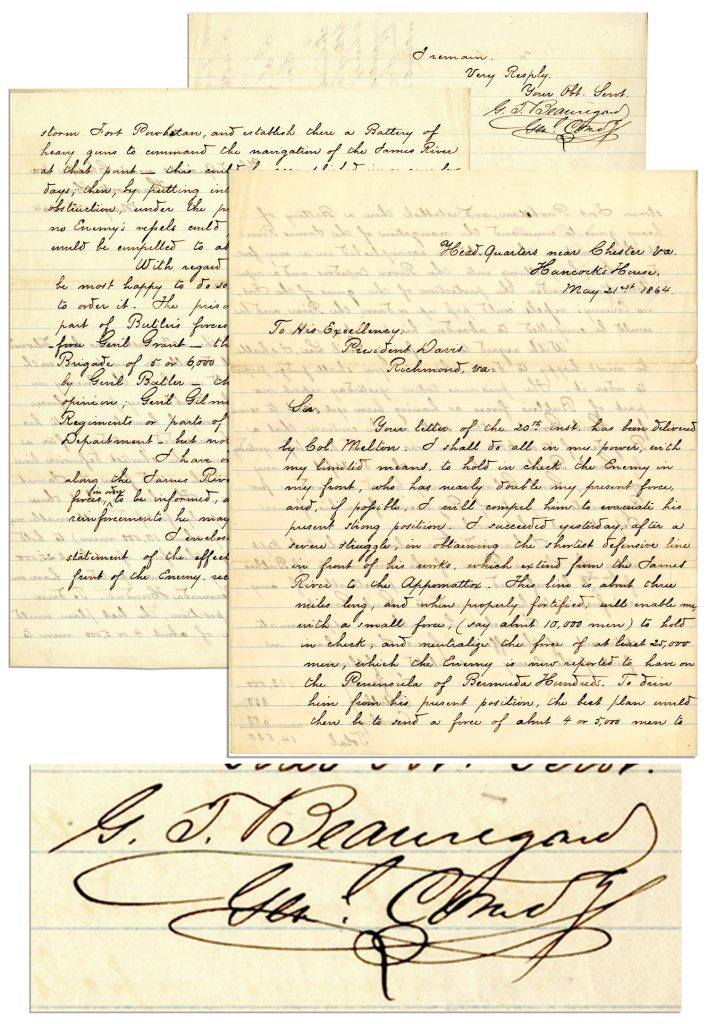 Head-Quarters near Chester Va.
Hancock's House,
May 21st 1864.
To His Excellency,
President Davis
Richmond, Va.
Sir,
Your letter of the 20th inst. has been delivered
by Col. Melton. I shall do all in my power, with
my limited means, to hold in check the Enemy in
my front, who has nearly double my present force,
and, if possible, I will compel him to evacuate his
present strong position. I succeeded yesterday, after a
severe struggle, in obtaining the shortest defensive line
in front of his works, which extend from the James
River to the Appomattox. This line is about three
miles long, and when properly fortified, will enable me,
with a small force, (say about 10,000 men) to hold
in check, and neutralize the force of at least 25,000
men, which the Enemy is now reported to have on
the Peninsula of Bermuda Hundreds. To drive
him from his present position, the best plan would
then be to send a force of about 4 or 5,000 men to
storm Fort Powhatan, and establish there a Battery of
heavy guns to command the navigation of the James River
at that point – this could
days; then, by putting in
obstruction, under the
no Enemy's vessels could
would be compelled to
With regard
be most happy to do so
to order it. The
part of Butler's forces
force Gen'l Grant – the
Brigade of 5 or 6,000
by Gen'l Butler –
opinion, Gen'l
Regiments or parts of
Department – but
I have
along the James
forces, in order to be informed,
reinforcements he may
I enclose
statement of the
front of the Enemy,
I remain.
Very Resply.
Your Obt. Servt.
G. T. Beauregard
Genl. Comdg
G. T. Beauregard
Genl. Comdg